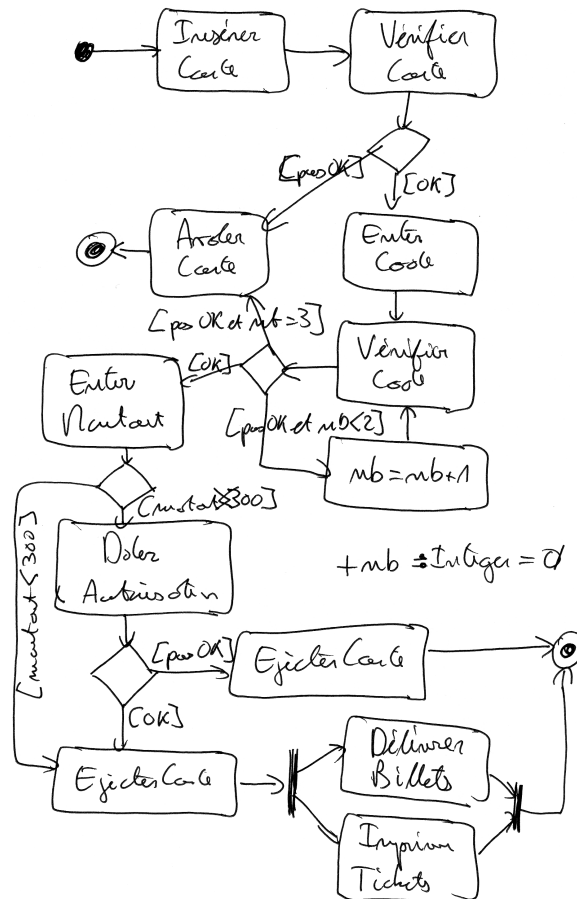 Insérer
Carte
Vérifier
Carte
[pas OK]
[OK]
Avaler
Carte
Enter
Code
[pas OK et nb=3]
Vérifier
Code
[OK]
Enter
Montant
[pas OK et nb<2]
nb=nb+1
300]
+nb : Integer = 0
[montant<300]
Autorisation
[pas OK]
Ejecter Carte
[OK]
Ejecter Carte
Délivrer
Billets
Imprimer
Tickets